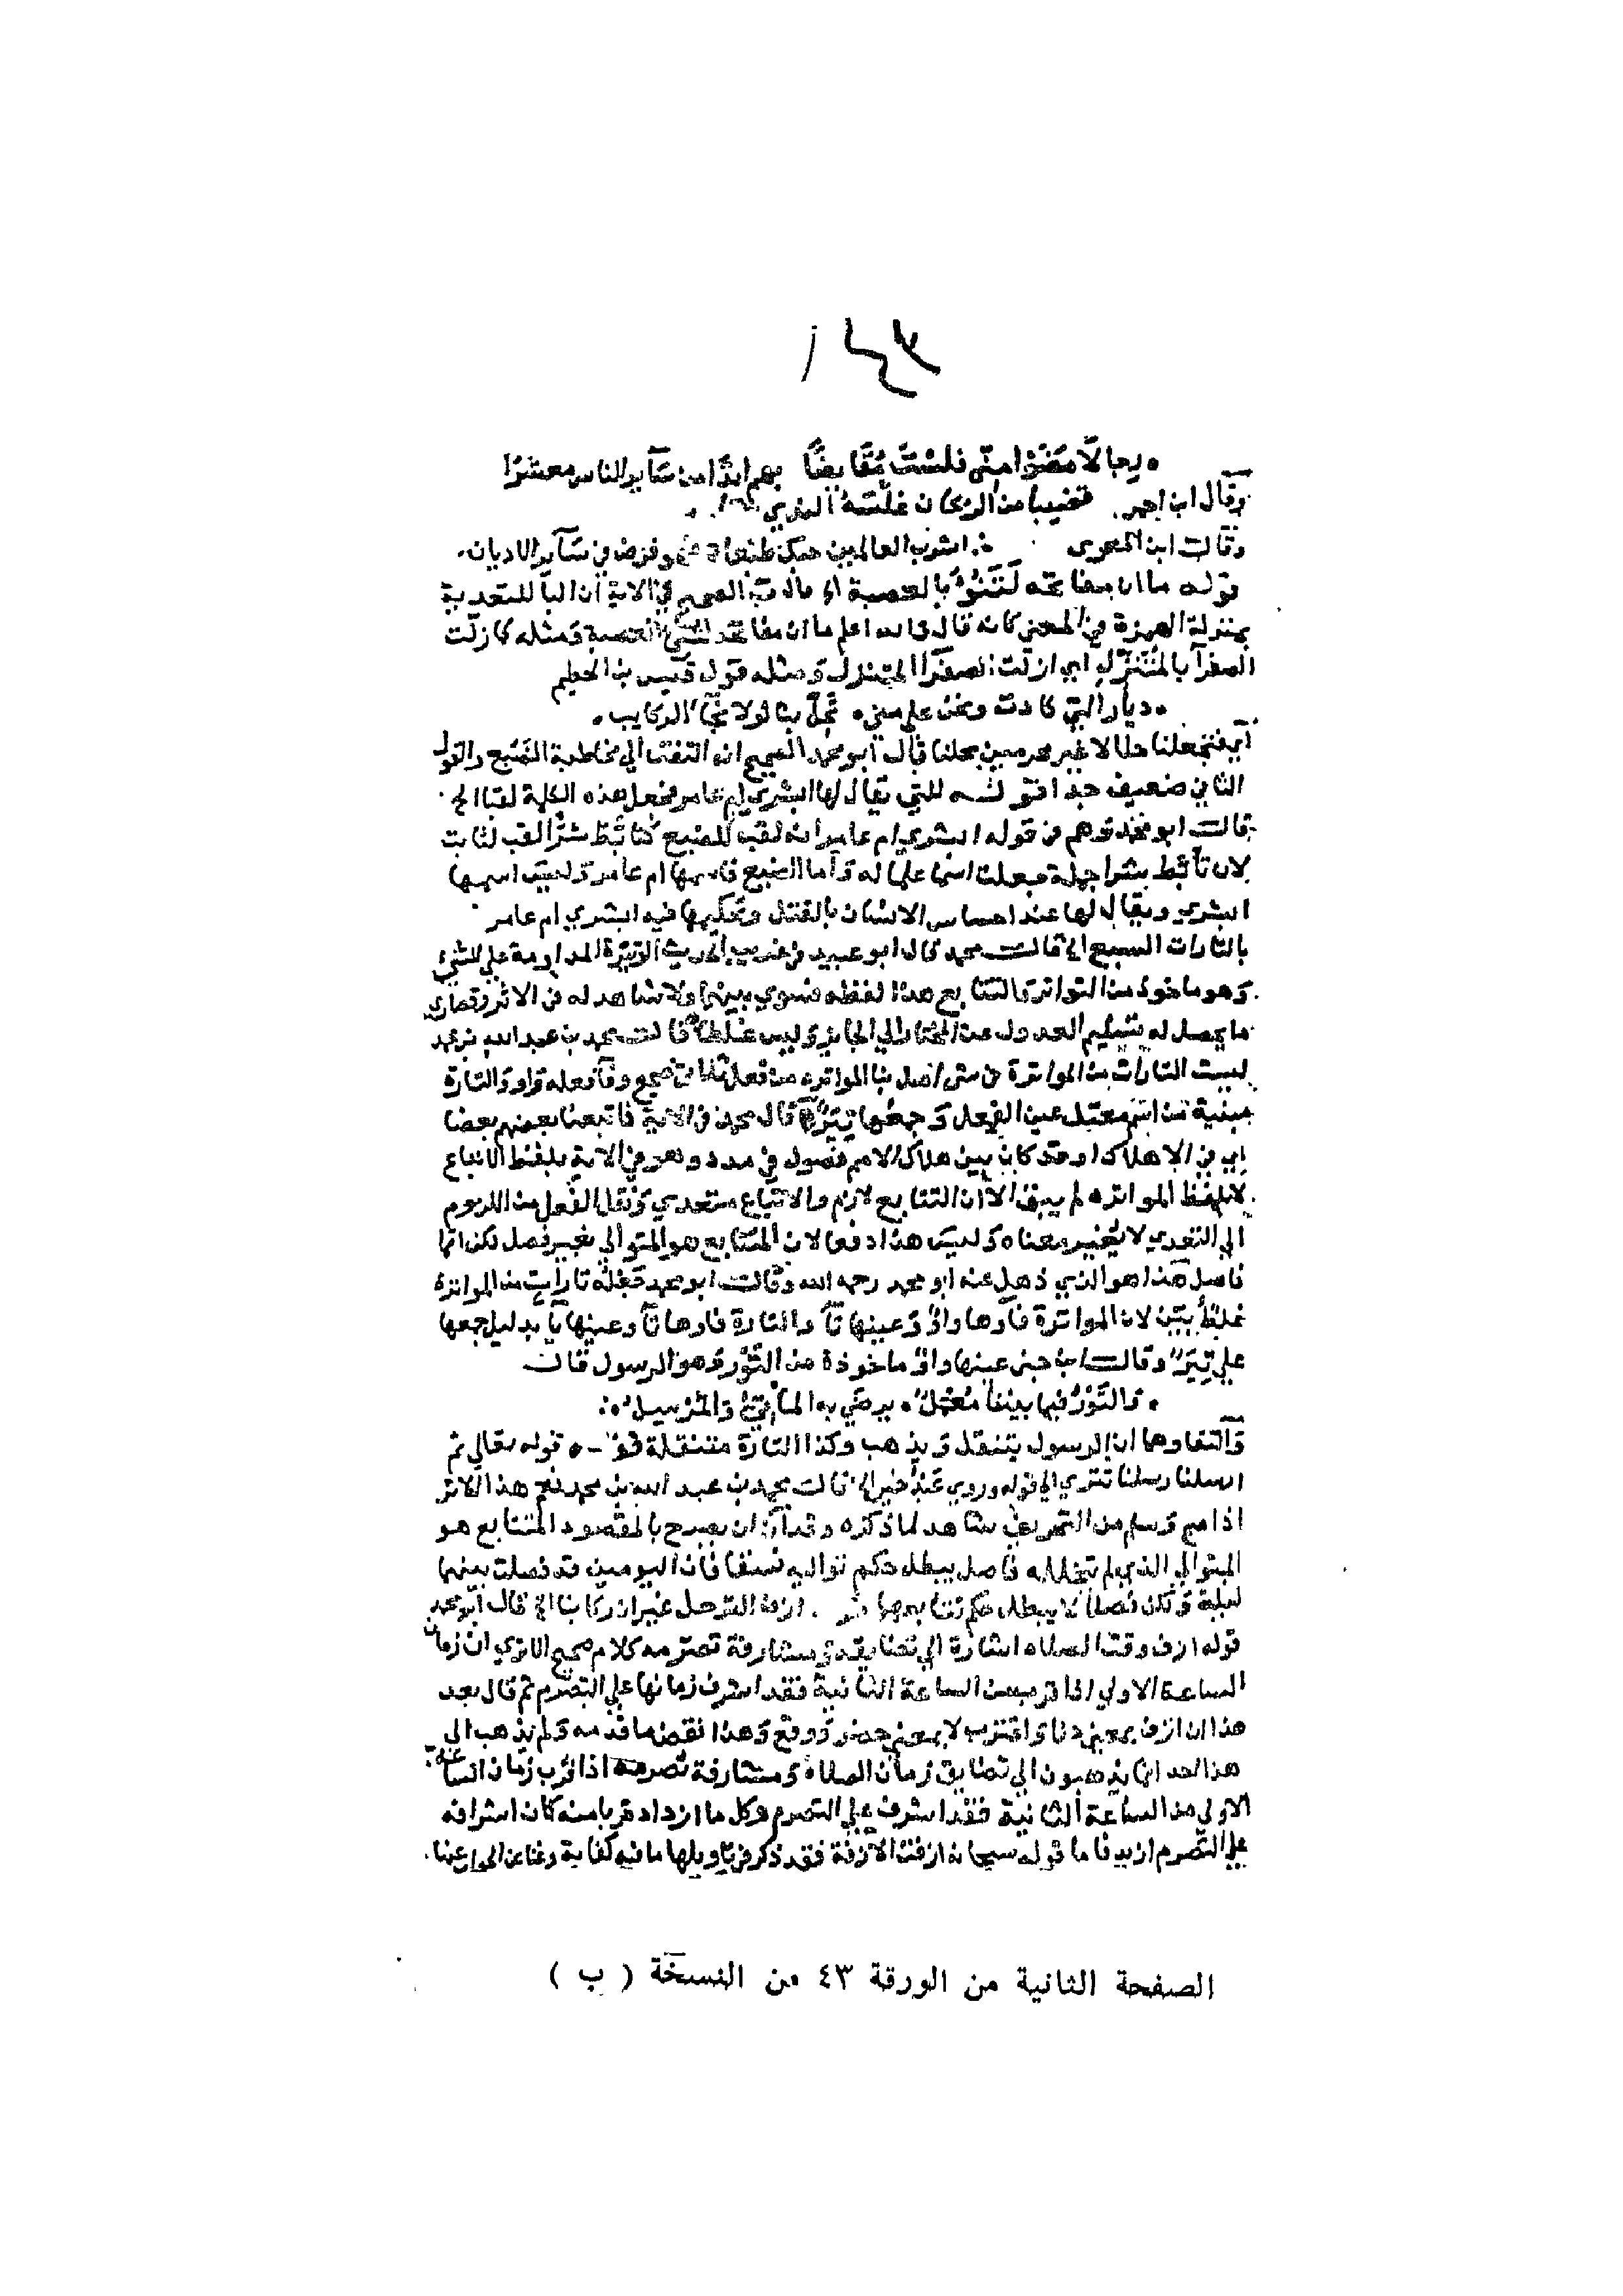 ٤٣
رجالا مضوا مني فلست مقايضا بهم ابدا من سآير الناس معشرا
وقال ابن احمر قضيبا من الريحان غلسه الندي
وقالت ابن اشرب العالمين فرض في سآير الاديان
قوله ما ان مفاتحه لَتَنُوُ بالعصبة الصحيح في الاية ان البآ للتعدية
بمنزلة الهمزة في المعني كانه قال والله اعلم ما ان مفاتحه العصبة ومثله كما زلّت
الصفرآ بالمُتَنَزّل اي ازلت الصفرآ المتنزل ومثله قول قيس بن الخطيم
ديار التي كادت ونحن علي مني تحلّ بنا لولا نجآ الركايب
اي فتجعلنا حلالا غير محرمين بحلنا قال ابو محمد الصحيح انه التفت الي مخاطبة الضبع والقول
الثاني ضعيف جدا قوله للتي يقال لها ابشري ام عامر فجعل هذه الكلمة لقبا الخ
قالت ابو محمد توهم في قوله ابشري ام عامر انه لقب للضبع كتأبّط شرّا لقب لثابت
لان تأبّط شرا جملة جعلت اسما علما له وأما الضبع فاسمها ام عامر وليس اسمها
ابشري ويقال لها عند احساس الانسان بالقتل وتحكيمها فيه ابشري ام عامر
بالتارات السبع الخ قالت محمد قال ابو عبيد في غريب الحديث الوتيرة المداومة علي الشيء
وهو ماخوذ من التواتر والتتابع هذا لفظه فسوي بينهما ولا شاهد له في الاثر وقصاري
ما يحصل له بتسليم العدول عن المختار الي الجايز وليس غلطا قالت محمد بن عبد الله بن محمد
ليست التارات من المواترة في شي اصل بنا المواتره من فعل صحيح وفآ فعله واو والتارة
مبنية من اسم معتل عين الفعل وجمعها تِيَرٌ قال محمد في الاية فاتبعنا بعضهم بعضا
اي في الاهلاك وقد كان بين هلاك الامم فصول في مدد وهو في الاية بلفظ الاتباع
لا بلفظ المواتره لم يبق الا ان التتابع لازم والاتباع متعدي ونقل الفعل من اللزوم
الي التعدي لا يُغير معناه وليس هذا دفعا لان المتتابع هو المتوالي بغير فصل لكن اتما
فاصل هذا هو الذي ذهل عنه ابو محمد رحمه الله وقالت ابو محمد جَعْلُه تارات من المواترة
غلطٌ بيّن لان المواترة فآوها واوٌ وعينها تآ والتارة فاوها تآ وعينها يآ بدليل جمعها
علي تِيَرٌ وقالت ابن جني عينها واو ماخوذة من التَّوْر وهو الرسول قال
والتَّوْرُ فيما بيننا مُعْمَلٌ يرضي به المأتيّ والمُرْسِلُ
والتقاوهما ان الرسول يتنقل ويذهب وكذا التارة متنقلة قوله تعالي ثم
ارسلنا رسلنا تتري الي قوله وروي عبد خير الخ قالت محمد بن عبد الله بن محمد نعم هذا الاثر
اذا صح وسلم من التحريف شاهد لما ذكره وقد ان يصرح بالمقصود المتتابع هو
المتوالي الذي لم يتخلله فاصل يبطل حكم تواليه شفعا فان اليومين قد فصلت بينهما
ليلة ولكن فصلا لا يبطل حكم تتابعهما ازف الترحل غير ان ركابنا الخ قال ابو محمد
قوله ازف وقت الصلاه اشارة الي تضايقه ومشارفة تصرّمه كلام صحيح الا تري ان زمان
الساعة الاولي اذا قرب من الساعة الثانية فقد اشرف زمانها علي التصرّم ثم قال بعد
هذا ان ازف بمعني دنا واقترب لا بمعني حضر ووقع وهذا نقض ما قدمه ولم يذهب الي
هذا احد انما يذهبون الي تضايق زمان الصلاة ومشارفة تصرمه اذا قرب زمان الساعة
الاولي من الساعة الثانية فقد اشرف علي التصرم وكل ما ازداد قربا منه كان اشرافه
علي التصرم ازيد فاما قوله سبحانه ازفت الازفة فقد ذكر في تاويلها ما فيه كفاية
الصفحة الثانية من الورقة ٤٣ من النسخة ( ب )